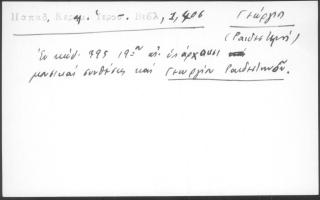 Παπαδ. Κερ. Ἱεροσ. Βιβλ, 1, 406
Γεώργιος
(Ραιδεστηνός)
Ἐν κώδ. 395 19ου αἰ. ὑπάρχουσι
μουσικαὶ συνθέσεις καὶ Γεωργίου Ραιδεστηνοῦ.